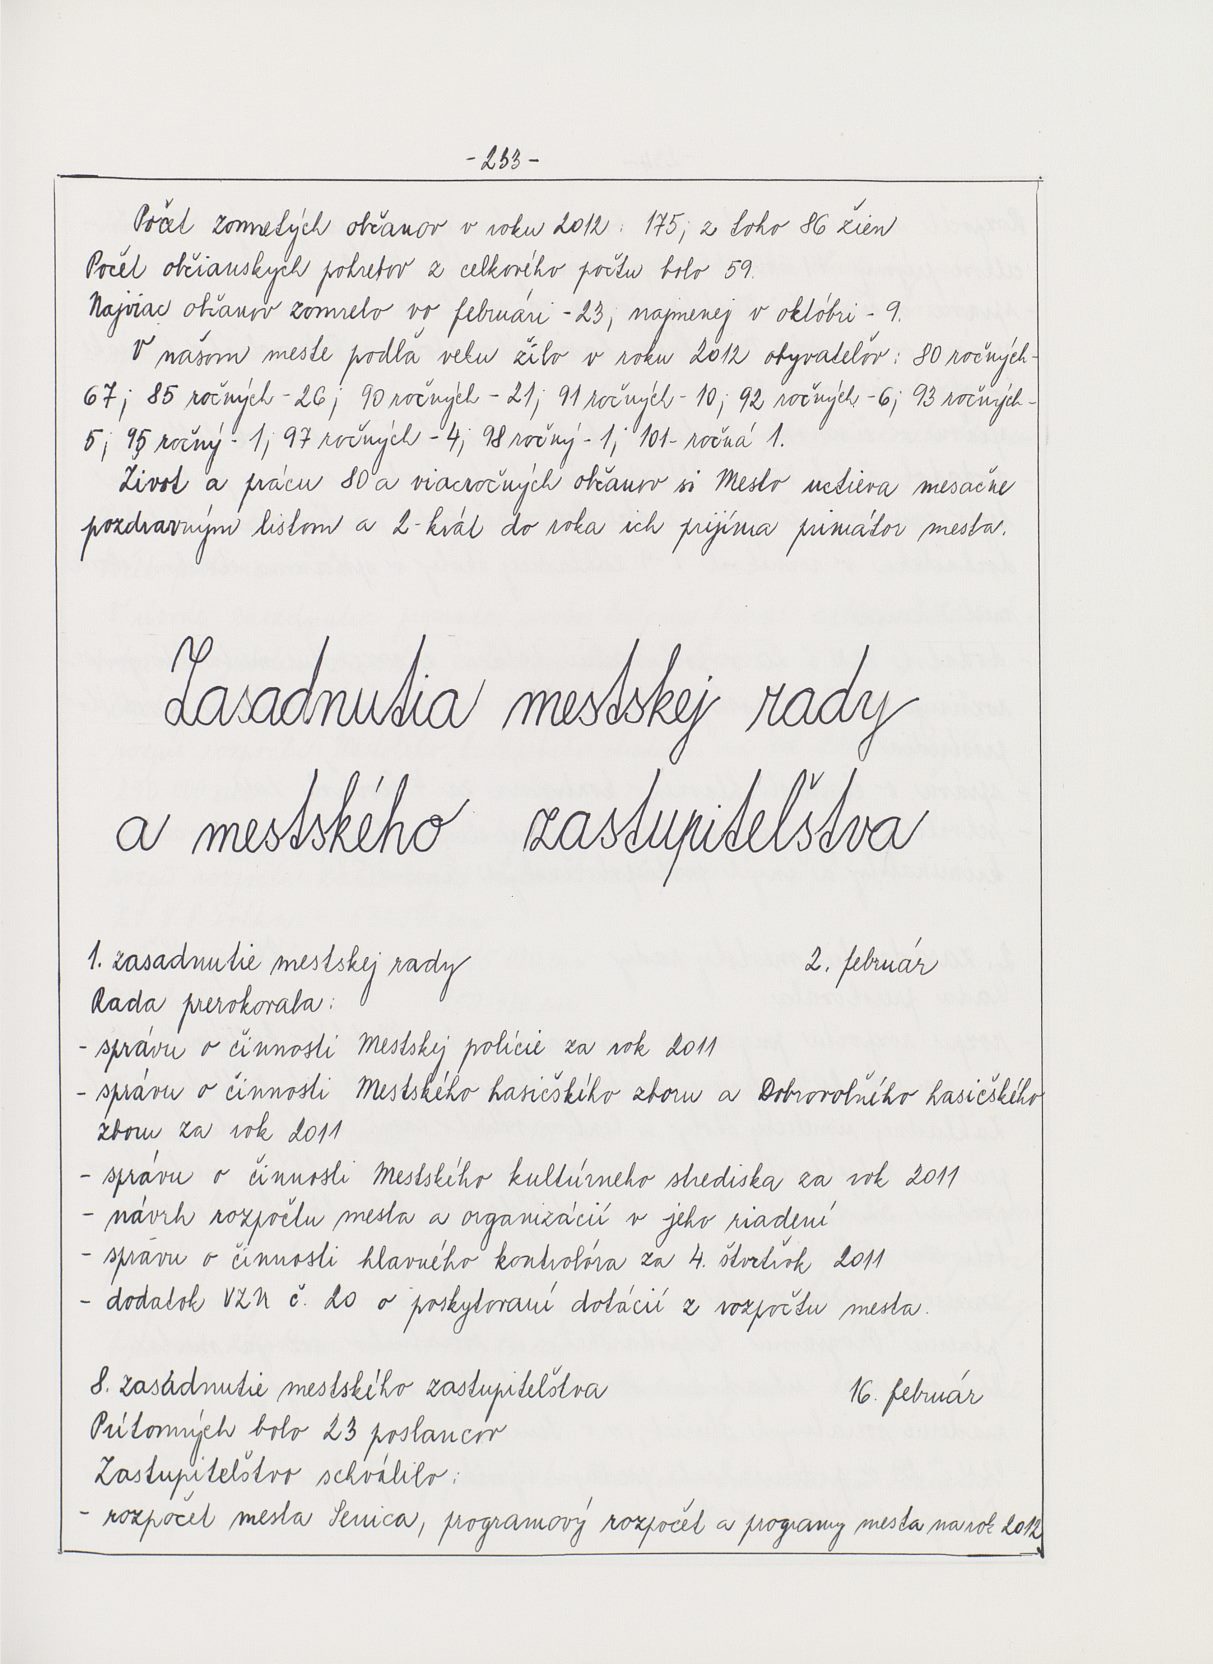 - 233 -
Počet zomretých občanov v roku 2012 : 175; z toho 86 žien
Počet občianskych pohrebov z celkového počtu bolo 59.
Najviac občanov zomrelo vo februári - 23, najmenej v októbri - 9.
V našom meste podľa veku žilo v roku 2012 obyvateľov: 80 ročných-
67; 85 ročných - 26; 90 ročných - 21; 91 ročných - 10; 92 ročných - 6; 93 ročných -
5; 95 ročný - 1; 97 ročných - 4; 98 ročný - 1; 101- ročná 1.
Život a prácu 80 a viacročných občanov si Mesto uctieva mesačne
pozdravným listom a 2-krát do roka ich prijíma primátor mesta.
Zasadnutia mestskej rady
a mestského zastupiteľstva
1. zasadnutie mestskej rady 2. február
Rada prerokovala:
- správu o činnosti Mestskej polície za rok 2011
- správu o činnosti Mestského hasičského zboru a Dobrovoľného hasičského
zboru za rok 2011
- správu o činnosti Mestského kultúrneho strediska za rok 2011
- návrh rozpočtu mesta a organizácií v jeho riadení
- správu o činnosti hlavného kontrolóra za 4. štvrťrok 2011
- dodatok VZN č. 20 o poskytovaní dotácií z rozpočtu mesta.
8. zasadnutie mestského zastupiteľstva 16. február
Prítomných bolo 23 poslancov
Zastupiteľstvo schválilo:
- rozpočet mesta Senica, programový rozpočet a programy mesta na rok 2012